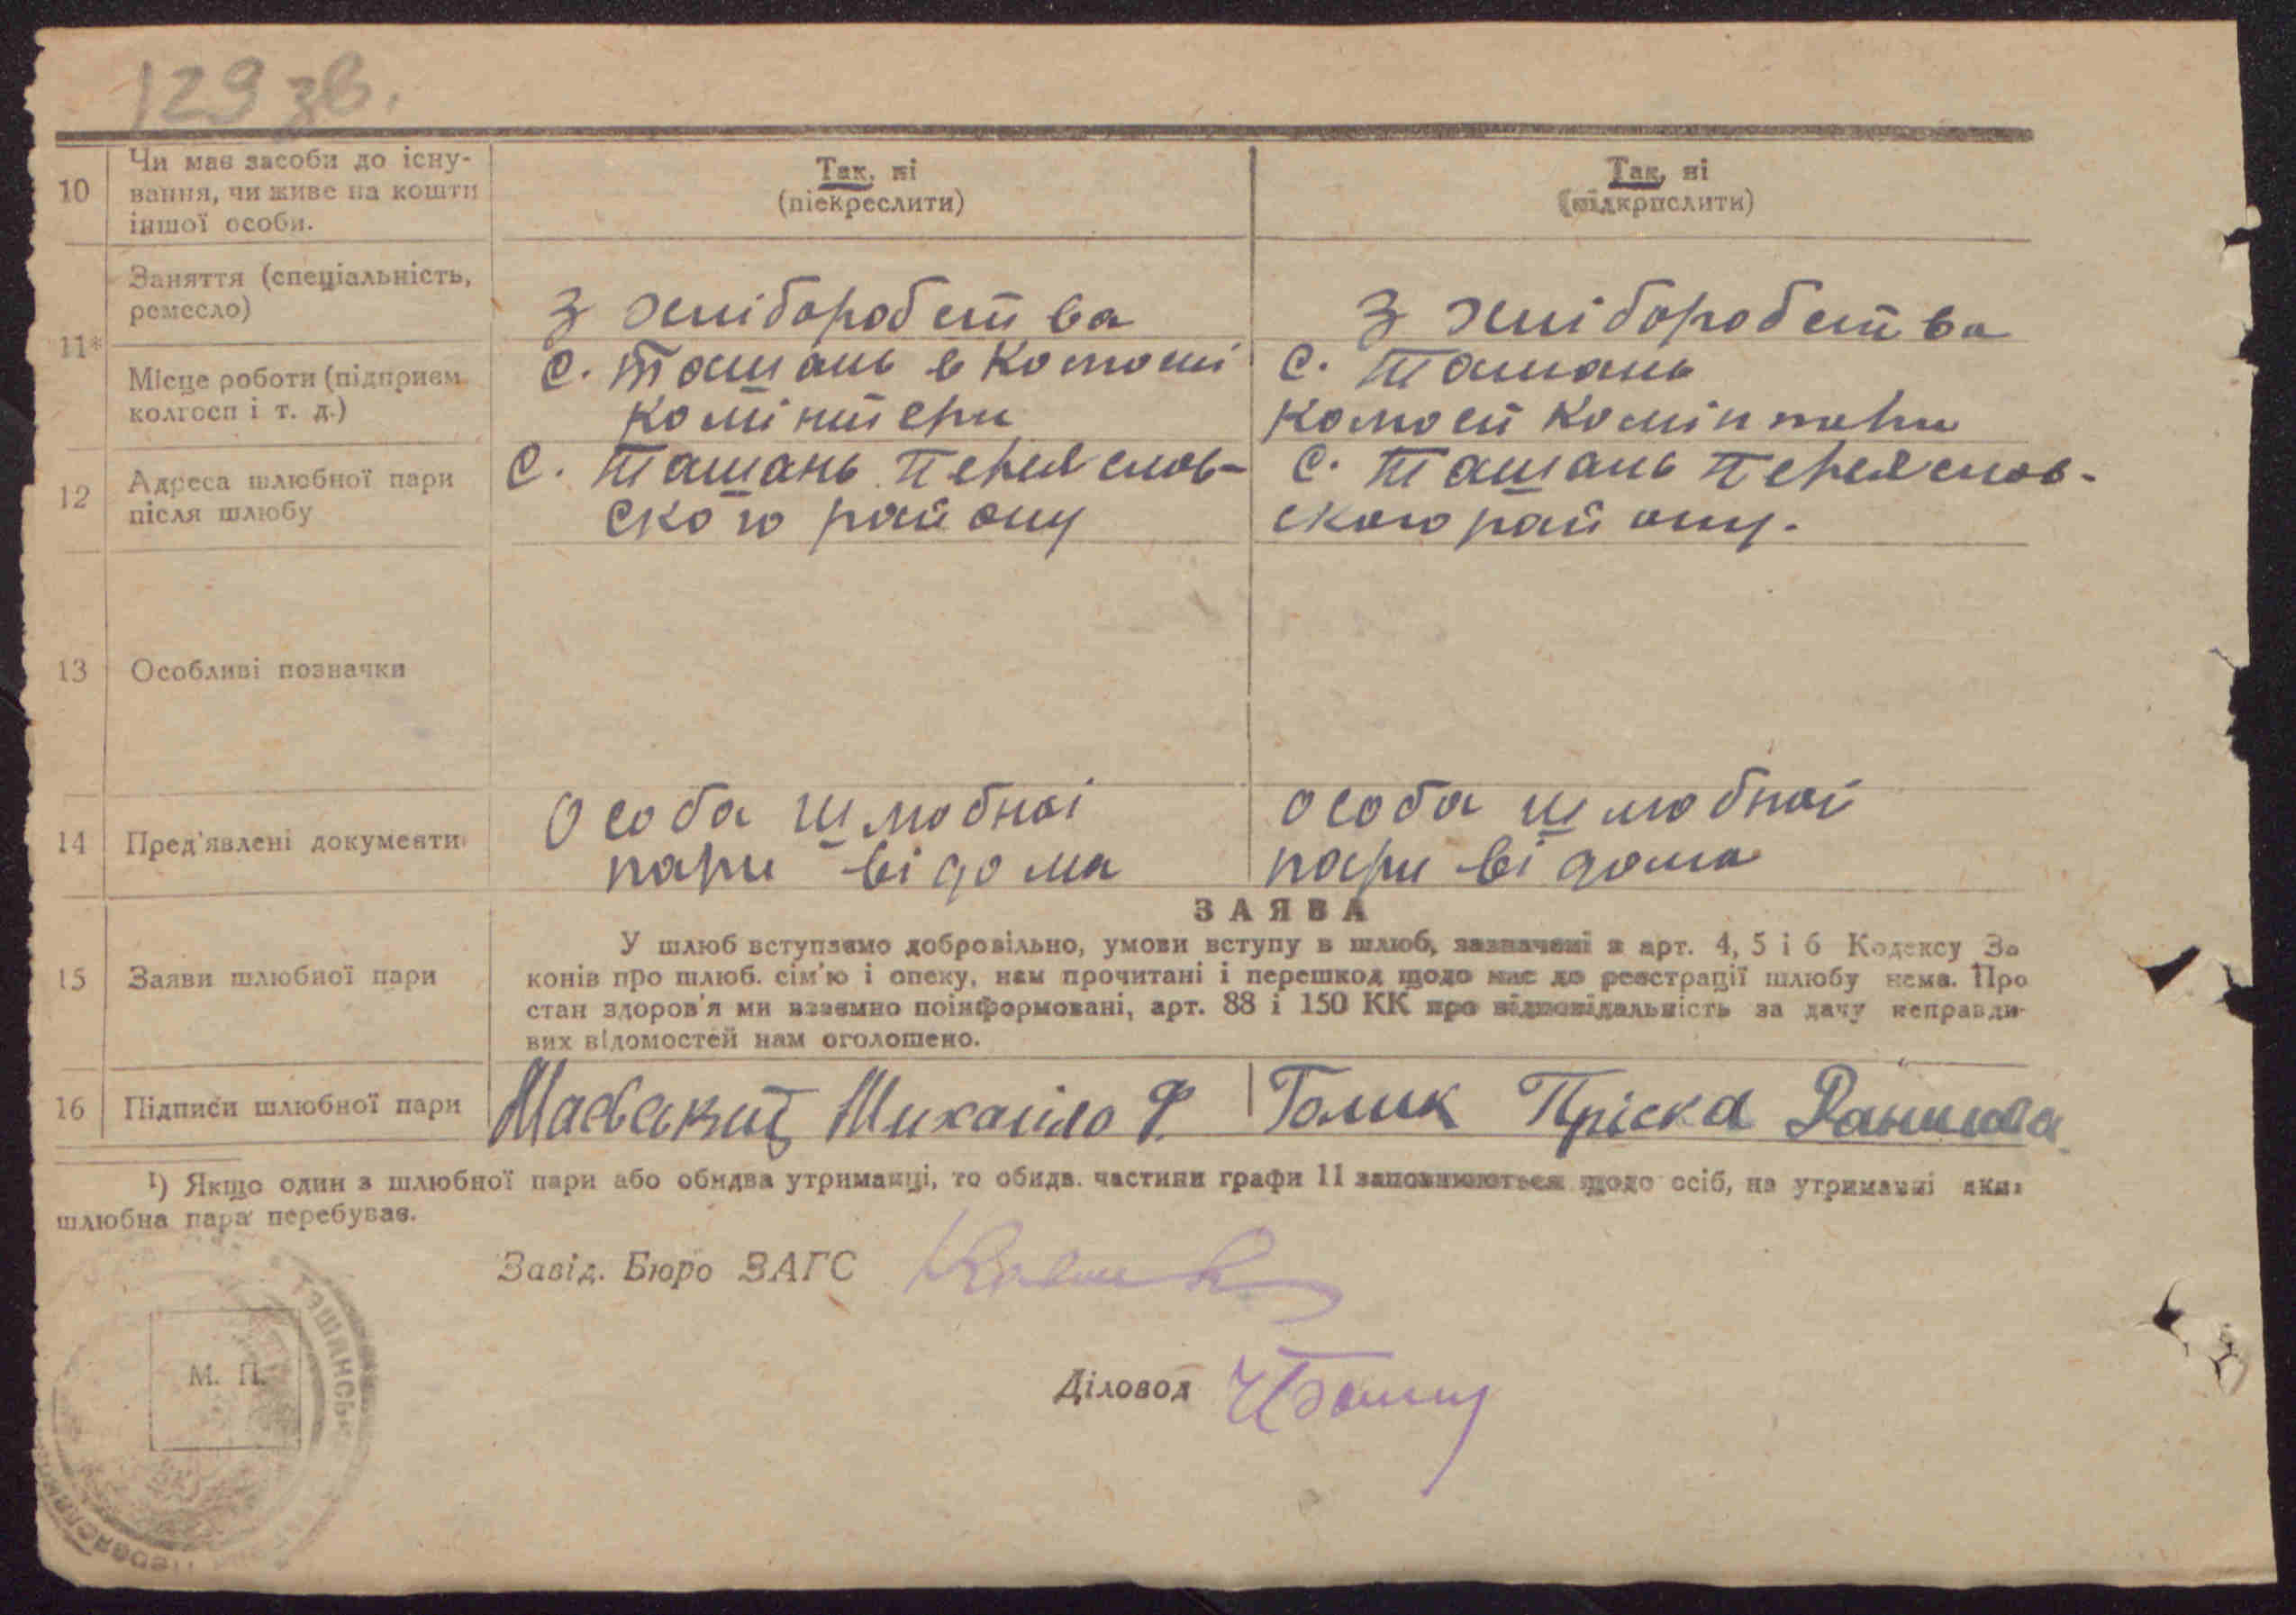 129 зв.
10
Чи має засоби до існу-
вання, чи живе на кошти
іншої особи.
Так, ні
(піекреслити)
Так, ні
(підкрпслити)
11*
Заняття (спеціальність,
ремесло)
З хліборобства
З хліборобства
Місце роботи (підприєм
колгосп і т. д.)
с. Ташань в
Комінтерн
с. Ташань
Комінтерн
12
Адреса шлюбної пари
після шлюбу
с. Ташань Переяслов-
ского району
с. Ташань Переяслов-
ского району.
13
Особливі позначки
14
Пред'явлені документи
Особа шлюбної
пари відома
особа шлюбной
пари відома
ЗАЯВА
15
Заяви шлюбної пари
У шлюб вступаємо добровільно, умови вступу в шлюб, зазначені в арт. 4, 5 і 6 Кодексу За
конів про шлюб. сім'ю і опеку, нам прочитані і перешкод щодо нас до реєстрації шлюбу нема. Про
стан здоров'я ми взаємно поінформовані, арт. 88 і 150 КК про відповідальність за дачу неправди-
вих відомостей нам оголошено.
16
Підписи шлюбної пари
Михайло Ф.
Голик Пріска
¹) Якщо один з шлюбної пари або обидва утриманці, то обидв. частини графи 11 заповнюються щодо осіб, на утриманні яких
шлюбна пара перебуває.
Завід. Бюро ЗАГС
М. П.
Діловод